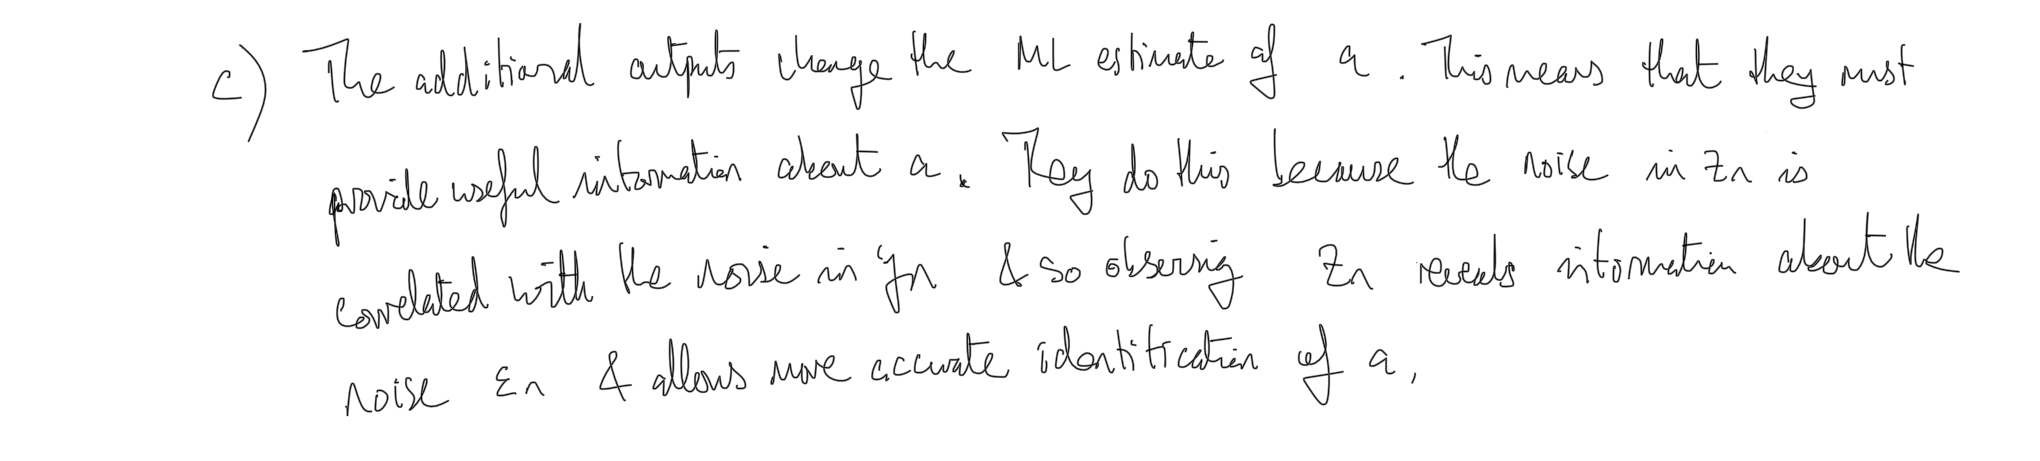 c) The additional outputs change the ML estimate of a. This means that they must
provide useful information about a. They do this because the noise in zn is
correlated with the noise in yn & so observing zn reveals information about the
noise εn & allows more accurate identification of a.